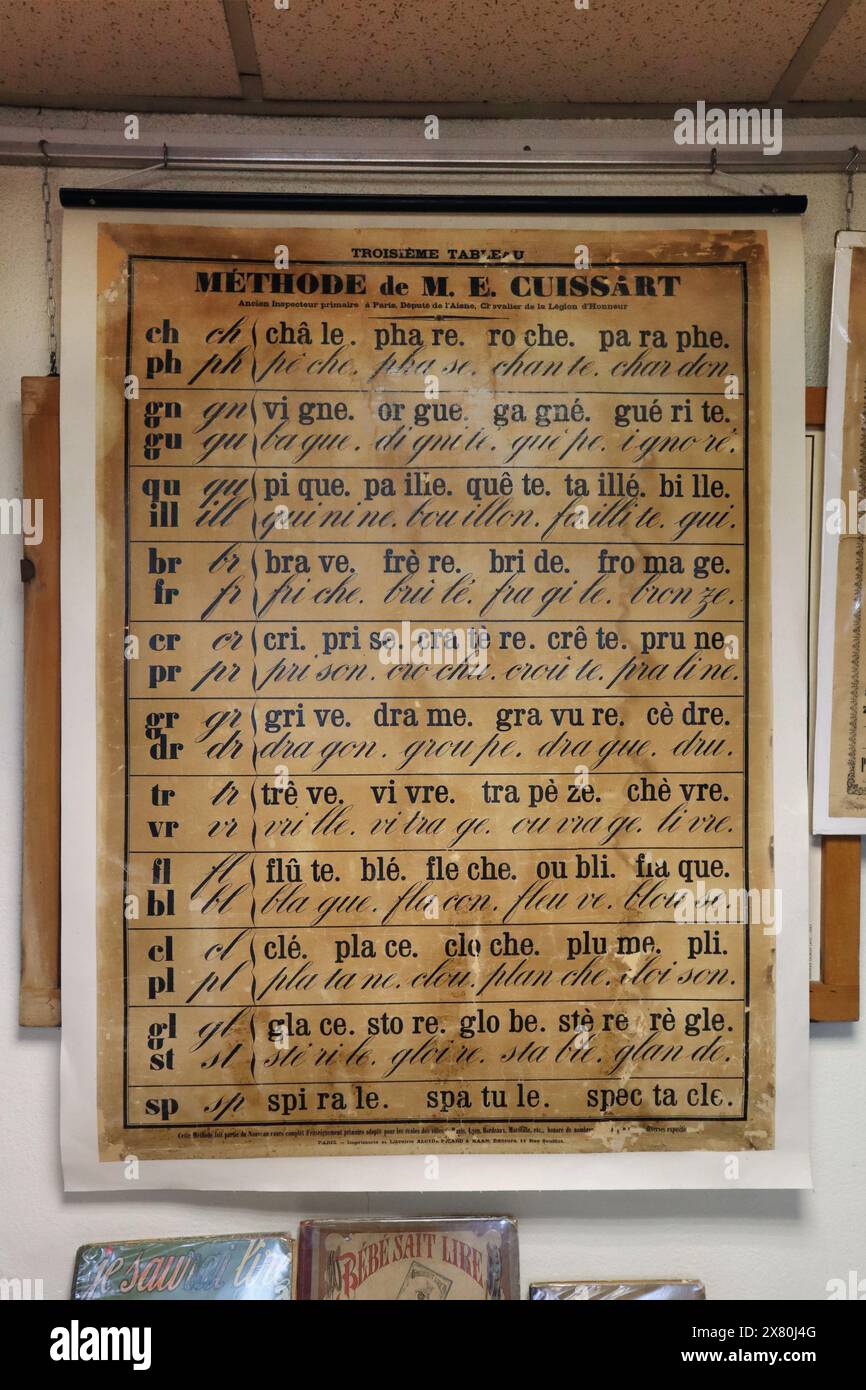 TROISIÈME TABLEAU
MÉTHODE de M. E. CUISSART
Ancien Inspecteur primaire à Paris, Député de l'Aisne, Chevalier de la Légion d'Honneur
ch ch châ le. pha re. ro che. pa ra phe.
ph ph pê che. pha se. chan te. char don.
gn gn vi gne. or gue. ga gné. gué ri te.
gu gu ba gue. di gni té. guê pe. i gno ré.
qu qu pi que. pa ille. quê te. ta illé. bi lle.
ill ill qui ni ne. bou illon. fa illi te. qui.
br br bra ve. frè re. bri de. fro ma ge.
fr fr fri che. brû lé. fra gi le. bron ze.
cr cr cri. pri se. cra tè re. crê te. pru ne.
pr pr pri son. cro chu. croû te. pra li ne.
gr gr gri ve. dra me. gra vu re. cè dre.
dr dr dra gon. grou pe. dra gue. dru.
tr tr trê ve. vi vre. tra pè ze. chè vre.
vr vr vri lle. vi tra ge. ou vra ge. li vre.
fl fl flû te. blé. fle che. ou bli. fla que.
bl bl bla gue. fla con. fleu ve. blou se.
cl cl clé. pla ce. clo che. plu me. pli.
pl pl pla ta ne. clou. plan che. cloi son.
gl gl gla ce. sto re. glo be. stè re rè gle.
st st sté ri le. gloi re. sta ble. glan de.
sp sp spi ra le. spa tu le. spec ta cle.
Cette Méthode fait partie du Nouveau cours complet d'enseignement primaire adopté pour les écoles des villes de Paris, Lyon, Bordeaux, Marseille, etc., honoré de diverses
PARIS. — Imprimerie et Librairie ALCIDE PICARD & KAAN, Éditeurs, 11 Rue Soufflot.
je saurai lire
BÉBÉ SAIT LIRE
alamy
Image ID: 2X80J4G
www.alamy.com